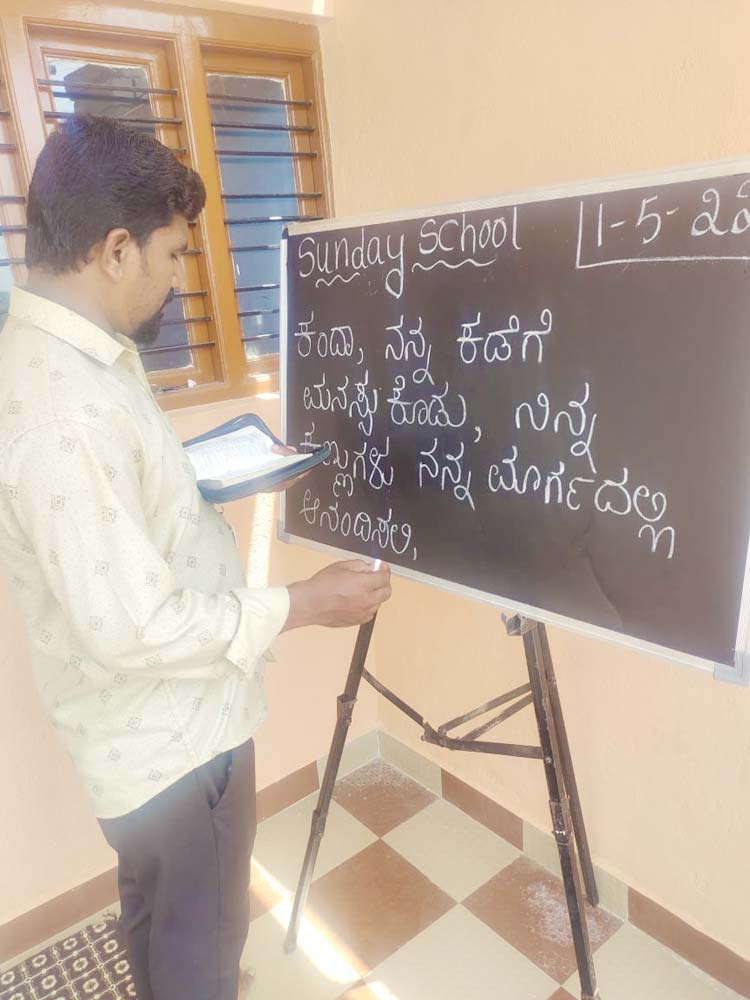 Sunday School
1-5-22
ಕಂದಾ, ನನ್ನ ಕಡೆಗೆ
ಮನಸ್ಸು ಕೊಡು, ನಿನ್ನ
ಕಣ್ಣುಗಳು ನನ್ನ ಮಾರ್ಗದಲ್ಲಿ
ಆನಂದಿಸಲಿ,